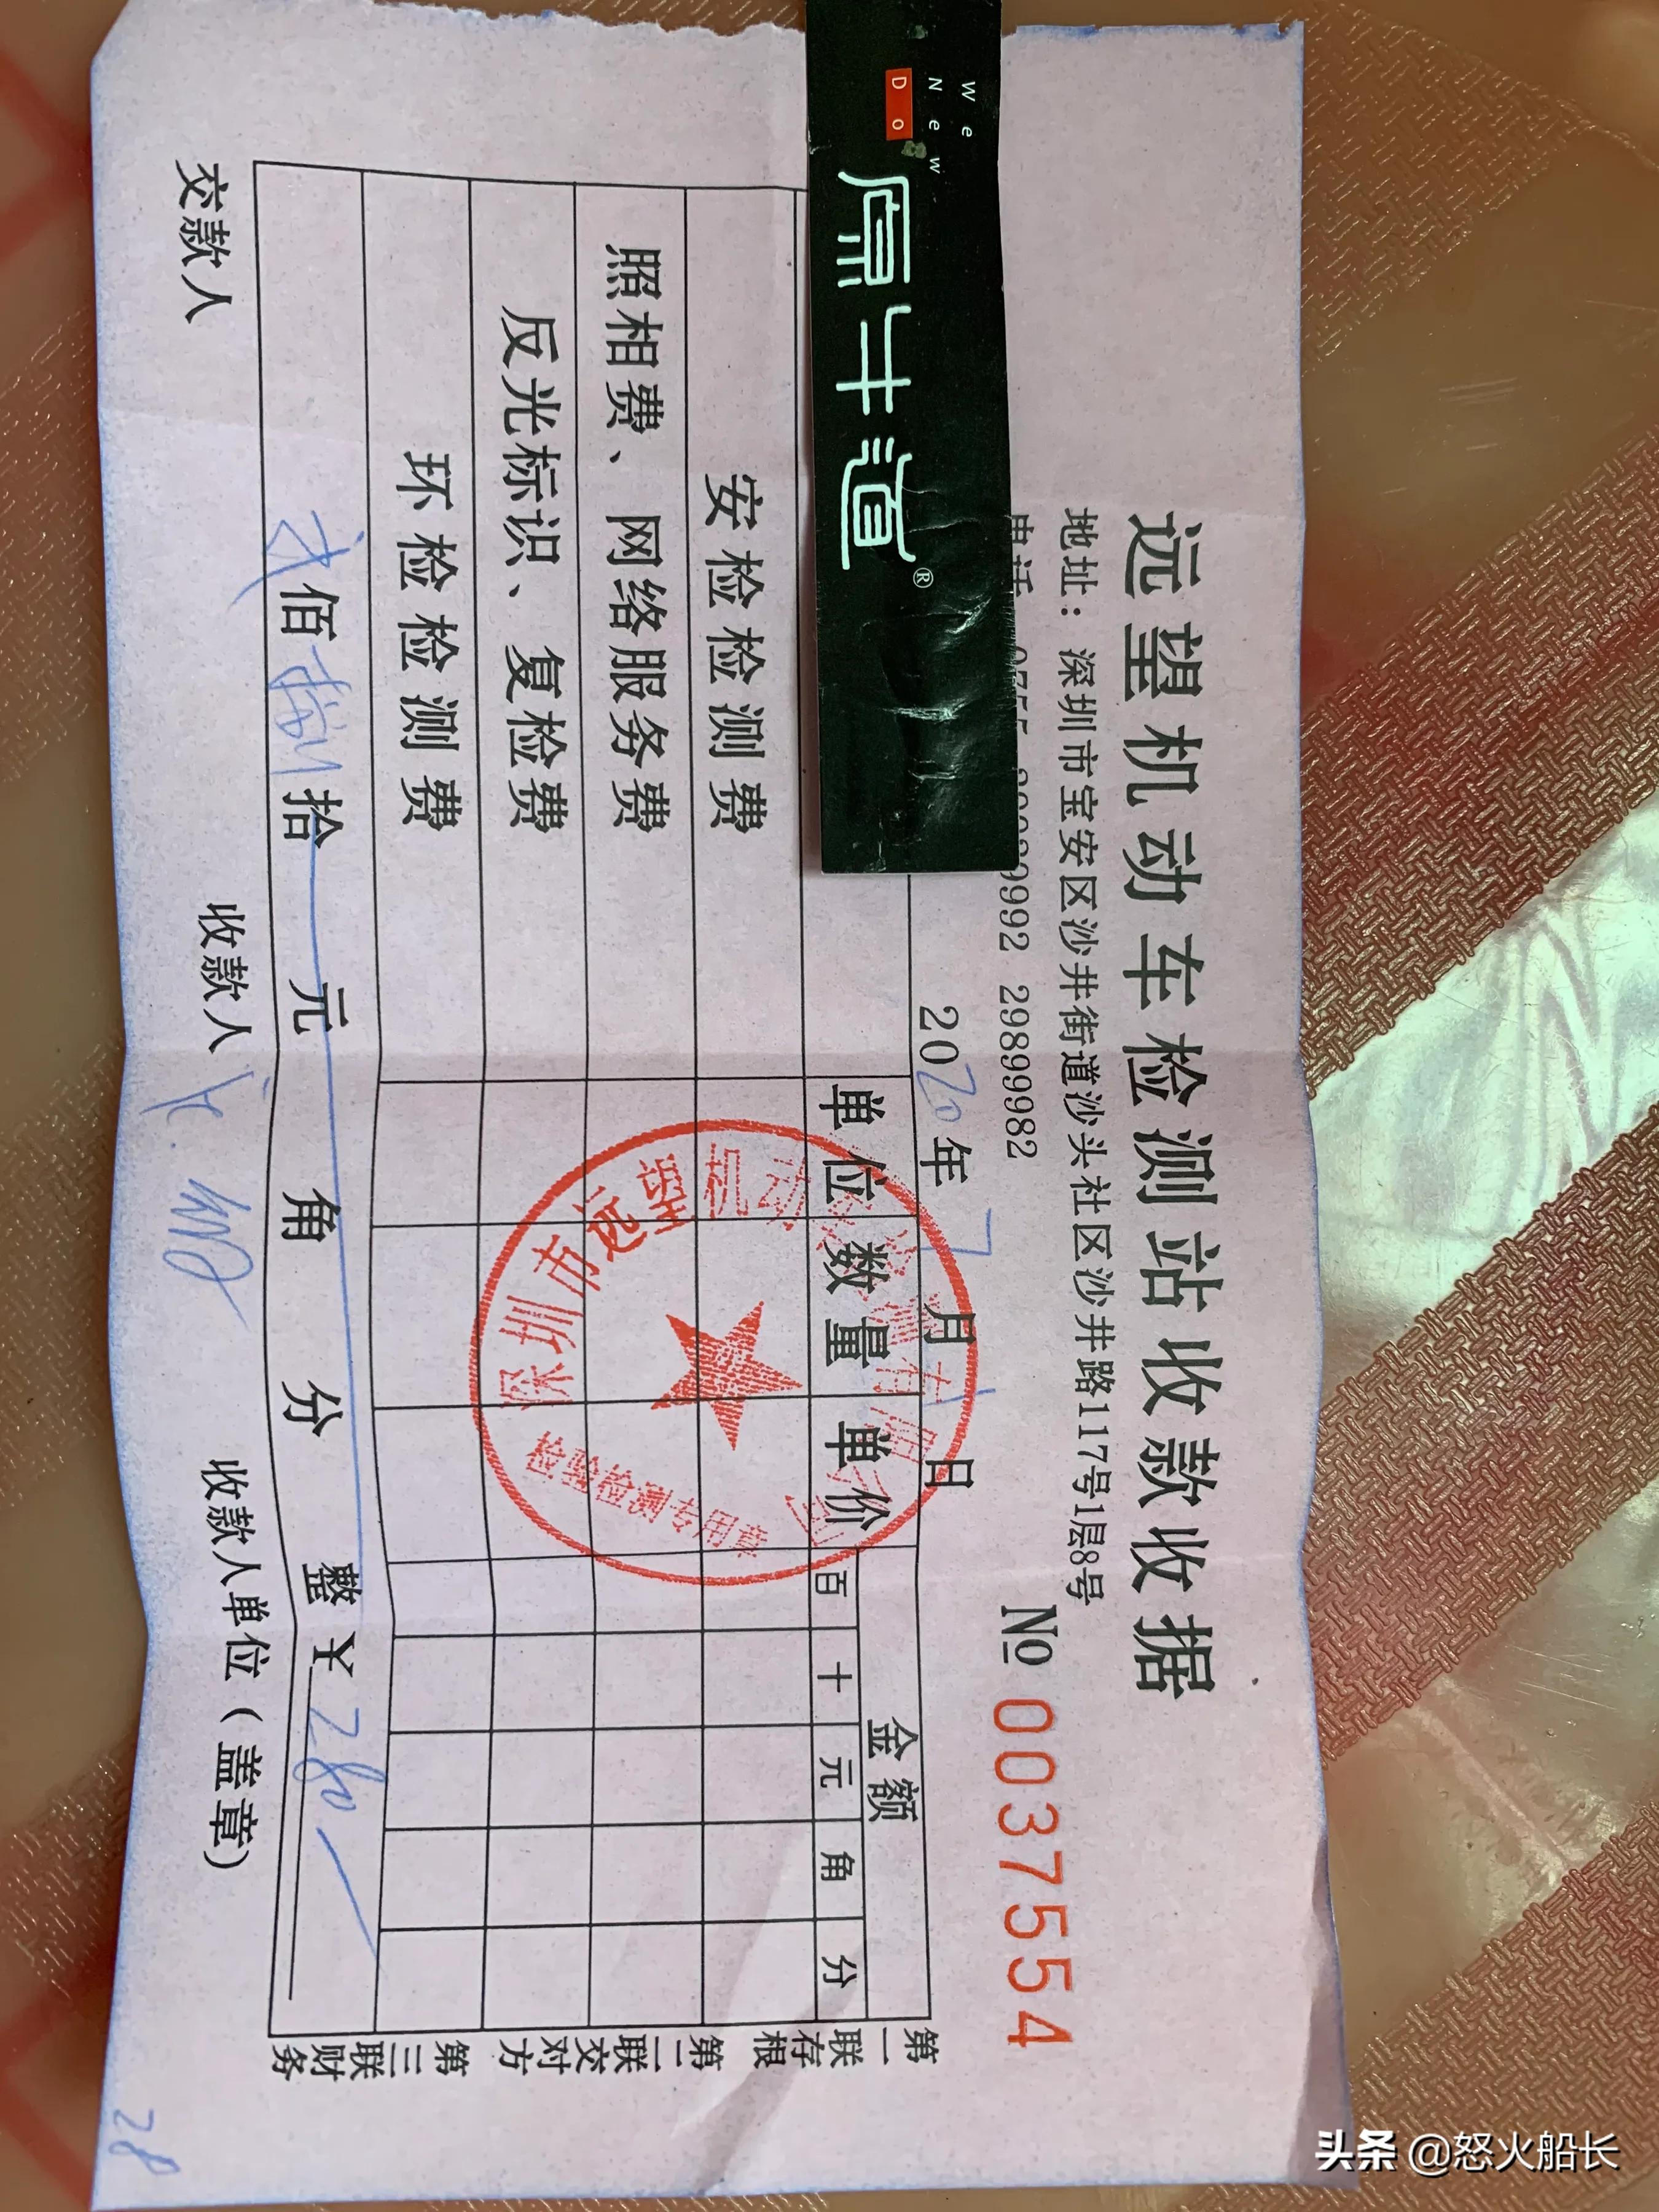 远望机动车检测站收款收据
地址：深圳市宝安区沙井街道沙头社区沙井路117号1层8号
电话 0755 9992 29899982
№ 0037554
2020年7月1日
We
New
Do
牛道®
单位 数量 单价 金额
百 十 元 角 分
安检检测费
照相费、网络服务费
反光标识、复检费
环检检测费
贰佰捌拾元 角 分 整 ￥280
交款人 收款人 收款人单位（盖章）
第一联存根 第二联交对方 第三联财务
深圳市远望机动车检测有限公司
检验检测专用章
28
头条 @怒火船长